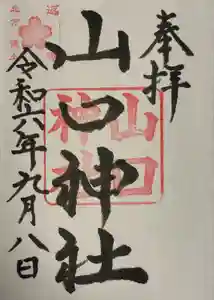 奉拝
山口神社
山口
神社
令和六年九月八日